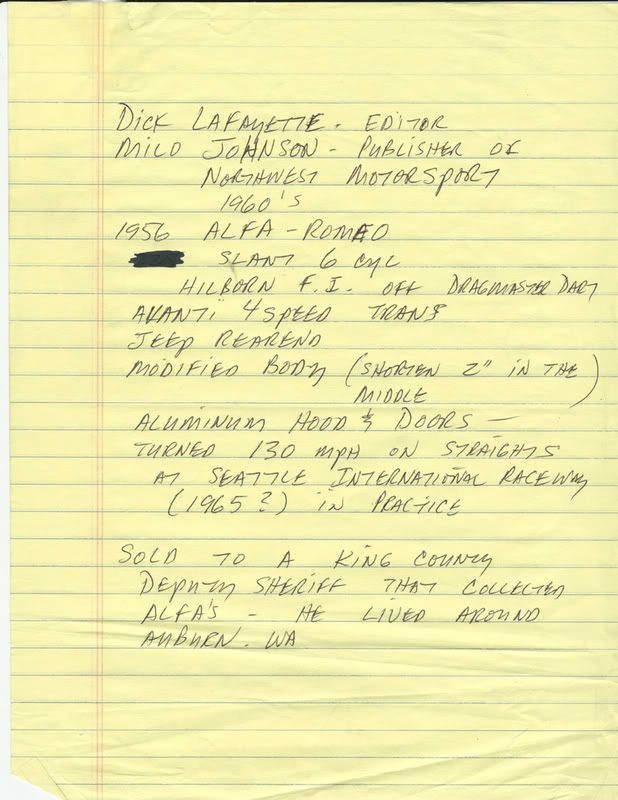 DICK LAFAYETTE - EDITOR
MILO JOHNSON - PUBLISHER OF
NORTHWEST MOTORSPORT
1960'S
1956 ALFA - ROMEO
SLANT 6 CYL
HILBORN F.I. OFF DRAGMASTER DART
AVANTI 4 SPEED TRANS
JEEP REAREND
MODIFIED BODY (SHORTEN 2" IN THE
MIDDLE)
ALUMINUM HOOD & DOORS -
TURNED 130 MPH ON STRAIGHTS
AT SEATTLE INTERNATIONAL RACEWAY
(1965?) IN PRACTICE
SOLD TO A KING COUNTY
DEPUTY SHERIFF THAT COLLECTED
ALFA'S - HE LIVED AROUND
AUBURN. WA